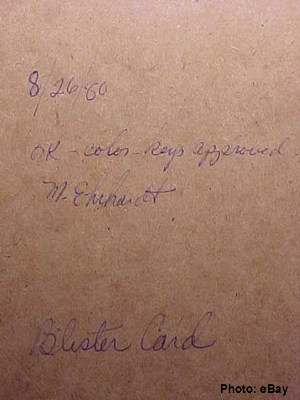 8/26/80
OK - color-keys approved
M. Ehrhardt
Blister Card
Photo: eBay